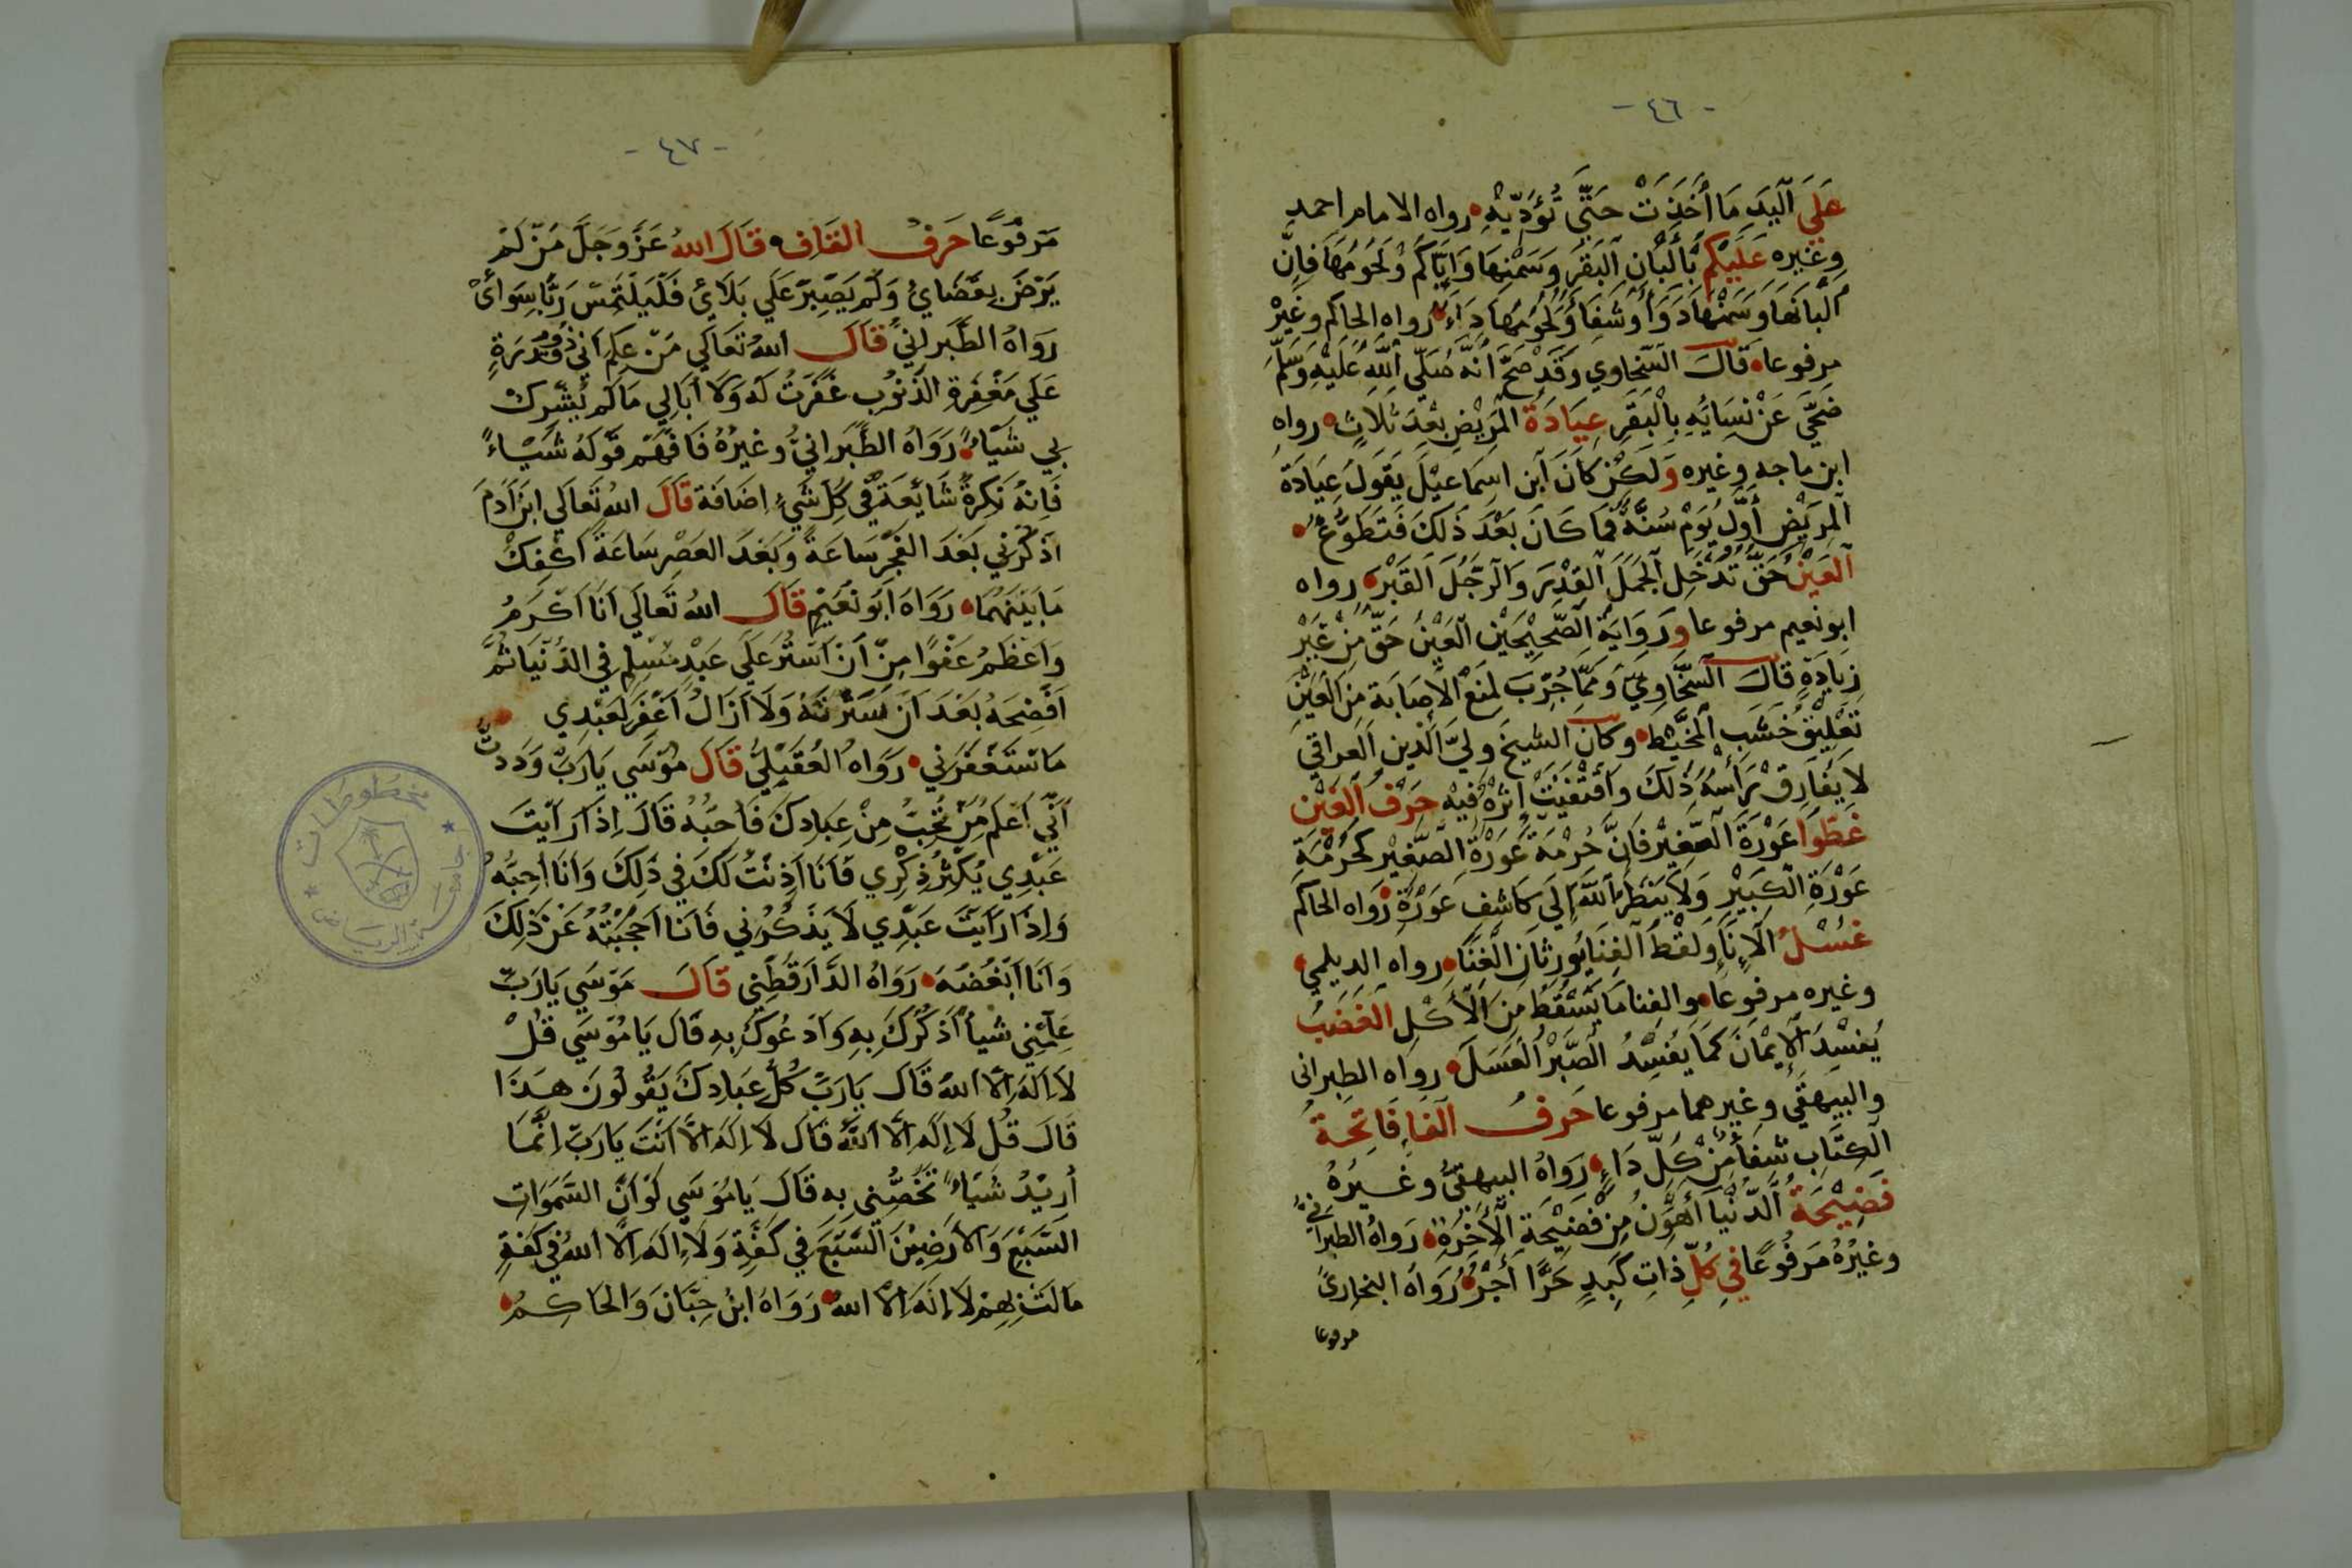 - ٤٦ -
علي اليد ما أخذت حتي تؤديه رواه الامام احمد
وغيره عليكم بألبان البقر وسمنها واياكم ولحومها فإن
ألبانها وسمنها دواء وشفاء ولحومها داء رواه الحاكم وغيره
مرفوعا قال السخاوي وقد صح أنه صلي الله عليه وسلم
ضحي عن نسايه بالبقر عيادة المريض بعد ثلاث رواه
ابن ماجه وغيره ولكن كان ابن اسماعيل يقول عيادة
المريض أول يوم سنة فما كان بعد ذلك فتطوع
العين حق تدخل الجمل القدر والرجل القبر رواه
ابو نعيم مرفوعا ورواية الصحيحين العين حق من غير
زيادة قال السخاوي ومما جرب لمنع الاصابة من العين
تعليق خشب المخيط وكان الشيخ ولي الدين العراقي
لا يفارق رأسه ذلك واقتفيت إثره فيه حرف الغين
غطوا عورة الصغير فان حرمة عورة الصغير كحرمة
عورة الكبير ولا ينظر الله إلي كاشف عورة رواه الحاكم
غسل الإناء ولقط الفنا يورثان الغنا رواه الديلمي
وغيره مرفوعا والفنا ما يسقط من الأكل الغضب
يفسد الإيمان كما يفسد الصبر العسل رواه الطبرانى
والبيهقي وغيرهما مرفوعا حرف الفا فاتحة
الكتاب شفأ من كل داء رواه البيهقي وغيره
فضيحة الدنيا أهون من فضيحة الأخرة رواه الطبراني
وغيره مرفوعا في كل ذات كبد حرا أجر رواه البخاري
مرفوعا
- ٤٧ -
مرفوعا حرف القاف قال الله عز وجل من لم
يرض بقضاي ولم يصبر علي بلائ فليلتمس ربا سوائ
رواه الطبراني قال الله تعالي من علم اني ذو قدرة
علي مغفرة الذنوب غفرت له ولا ابالي ما لم يشرك
بي شياء رواه الطبراني وغيره فافهم قوله شياء
فانه نكرة شايعة في كل شيء اضافة قال الله تعالي ابن آدم
اذكرني بعد الفجر ساعة وبعد العصر ساعة اكفك
ما بينهما رواه ابو نعيم قال الله تعالي انا اكرم
واعظم عفوا من أن استر علي عبد مسلم في الدنيا ثم
افضحه بعد ان سترته ولا ازال اغفر لعبدي
ما ستغفرني رواه العقيلي قال موسي يارب وددت
اني اعلم من تحب من عبادك فاحبه قال اذا رايت
عبدي يكثر ذكري فأنا اذنت لك في ذلك وانا احبه
واذا رايت عبدي لا يذكرني فانا احجبته عن ذلك
وانا ابغضه رواه الدارقطني قال موسي يارب
علمني شيأ اذكرك به وادعوك به قال يا موسي قل
لا اله الا الله قال يارب كل عبادك يقولون هذا
قال قل لا إله الا الله قال لا اله الا انت يارب انما
أريد شياء تخصني به قال يا موسي لو ان السموات
السبع والارضين السبع في كفة ولا اله الا الله في كفة
مالت بهم لا إله الا الله رواه ابن حبان والحاكم
مخطوطات
جامعة الرياض